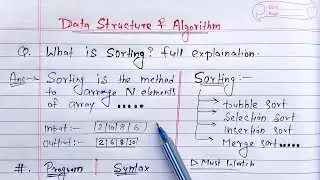 Data Structure & Algorithm
Q. What is Sorting? full explaination.
Ans→ Sorting is the method
to arrange N elements
of array .....
Input:- |2|10|8|6|
Output:- |2|6|8|10|
Sorting:-
→ bubble sort
→ Selection sort
→ Insertion sort
→ Merge sort.....
▷ Must Watch
#. Program | Syntax